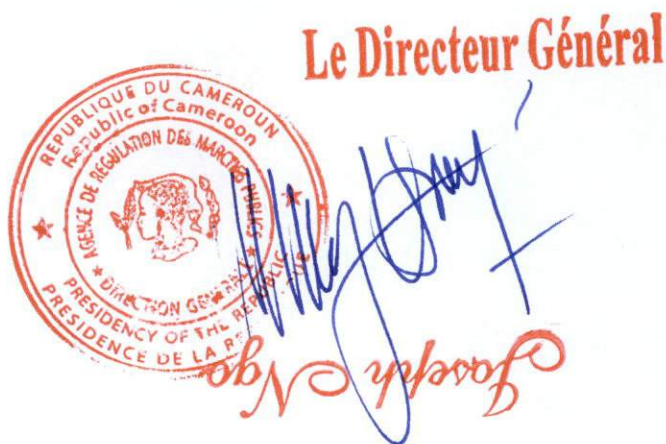 Le Directeur Général
REPUBLIQUE DU CAMEROUN
Republic of Cameroon
AGENCE DE REGULATION DES MARCHES PUBLICS
DIRECTION GENERALE
PRESIDENCY OF THE REPUBLIC
PRESIDENCE DE LA
Joseph Ngo